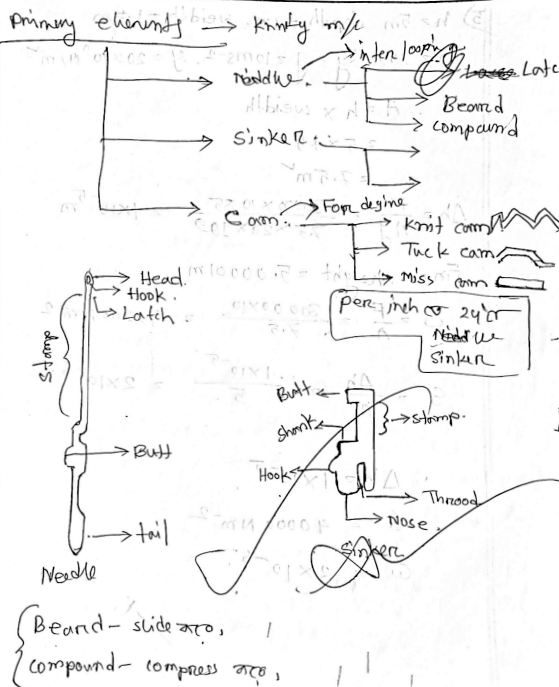 Primary elements → Knitty m/c
interlooping
Niddle
Latc
Beard
compound
Sinker
Cam
For degine
Knit cam
Tuck cam
Miss cam
Per inch
Niddle
Sinker
Head
Hook
Latch
Stamp
Butt
tail
Needle
Butt
Shank
Stamp
Hook
Throod
Nose
Sinker
Beard - slide করে,
compound - compress করে,